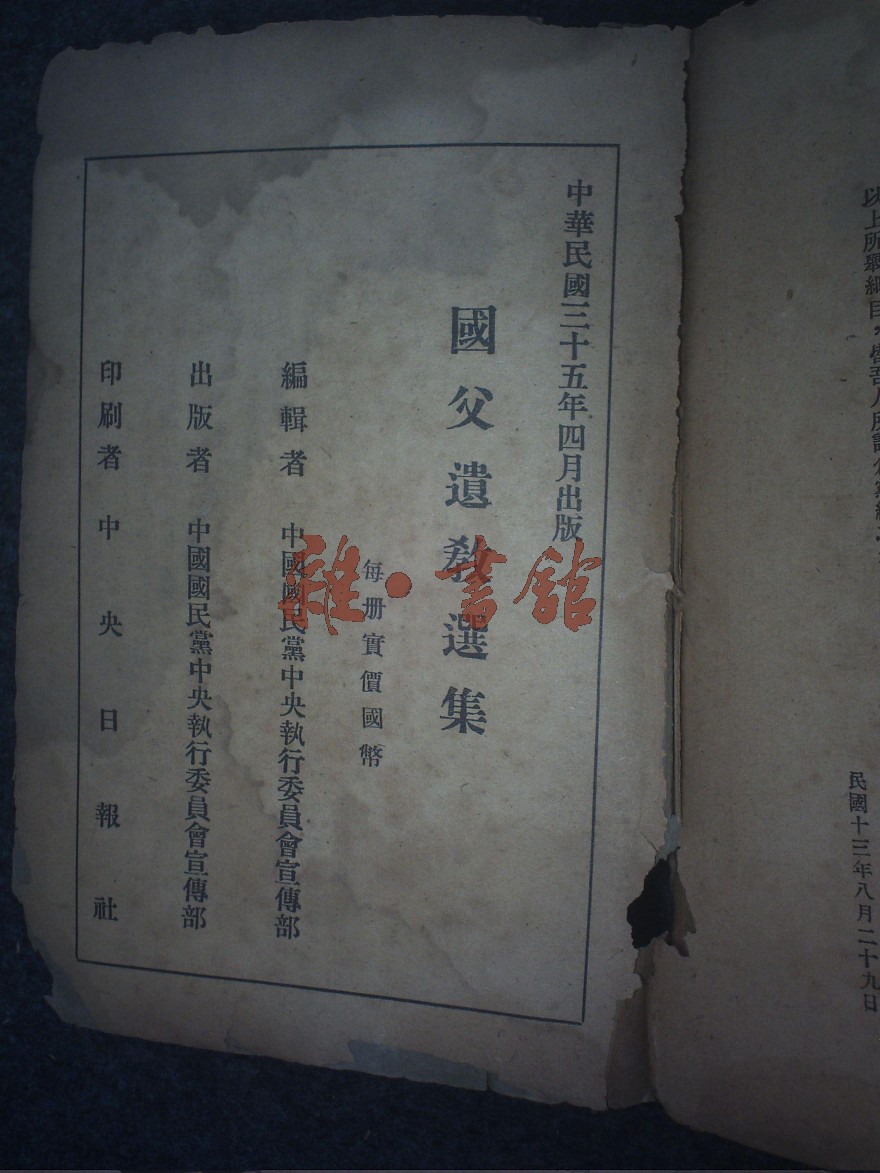 以上所舉綱目，皆吾人所
民國十三年八月二十九日
中華民國三十五年四月出版
國父遺教選集
每册實價國幣
編輯者 中國國民黨中央執行委員會宣傳部
出版者 中國國民黨中央執行委員會宣傳部
印刷者 中央日報社
雜·書館